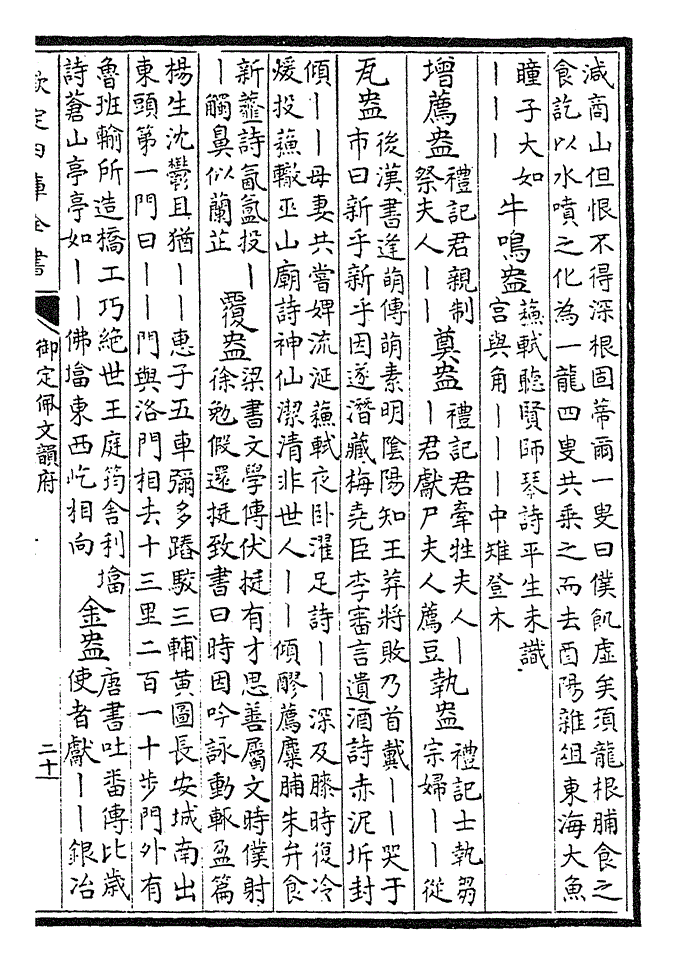 减商山但恨不得深根固蒂爾一叟曰僕飢虛矣須龍根脯食之
食訖以水噴之化為一龍四叟共乗之而去酉陽雜俎東海大魚
瞳子大如
｜｜｜
牛鳴盎
蘇軾聽賢師琴詩平生未識
宫與角｜｜｜｜中雉登木
增薦盎
禮記君親制
祭夫人｜｜
奠盎
禮記君牽牲夫人｜
｜君獻尸夫人薦豆
執盎
禮記士執芻
宗婦｜｜從
瓦盎
後漢書逢萌傳萌素明陰陽知王莽將敗乃首戴｜｜哭于
市曰新乎新乎因遂潛藏梅堯臣李審言遺酒詩赤泥坼封
傾｜｜毋妻共嘗婢流涎蘇軾夜卧濯足詩｜｜深及膝時復冷
煖投蘇轍巫山廟詩神仙潔清非世人｜｜傾醪薦麋脯朱弁食
新虀詩氤氲投｜
｜觸鼻似蘭芷
覆盎
梁書文學傳伏挺有才思善屬文時僕射
徐勉假還挺致書曰時因吟詠動輒盈篇
楊生沈鬱且猶｜｜惠子五車彌多踳駮三輔黄圖長安城南出
東頭第一門曰｜｜門與洛門相去十三里二百一十步門外有
魯班輸所造橋工巧絶世王庭筠舍利㙮
詩蒼山亭亭如｜｜佛㙮東西屹相向
金盎
唐書吐蕃傳比歲
使者獻｜｜銀冶
欽定四庫全書
御定佩文韻府
二十